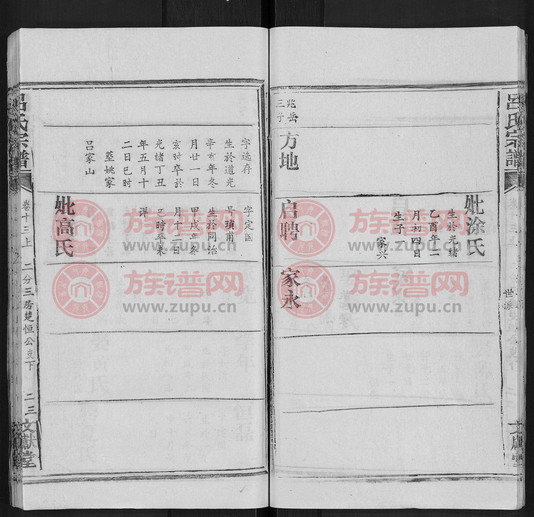 呂氏宗譜
世派
文獻堂
妣涂氏
生於光緒
乙酉年二
月初四日
生子
家興
兆岳
三子
方地
啟聘
家永
字逸存
生於道光
辛亥年冬
月廿一日
亥時卒於
光緒丁丑
年五月十
二日巳時
葬姚家
呂家山
字定匡
號璜甫
生於同治
甲戌
月十二日
巳時卒未
詳
妣高氏
呂氏宗譜
卷十三上
二分三房楚恒公支下
二三
文獻堂
族谱网
www.zupu.cn
族谱网
www.zupu.cn
族谱网
www.zupu.cn
族谱网
www.zupu.cn